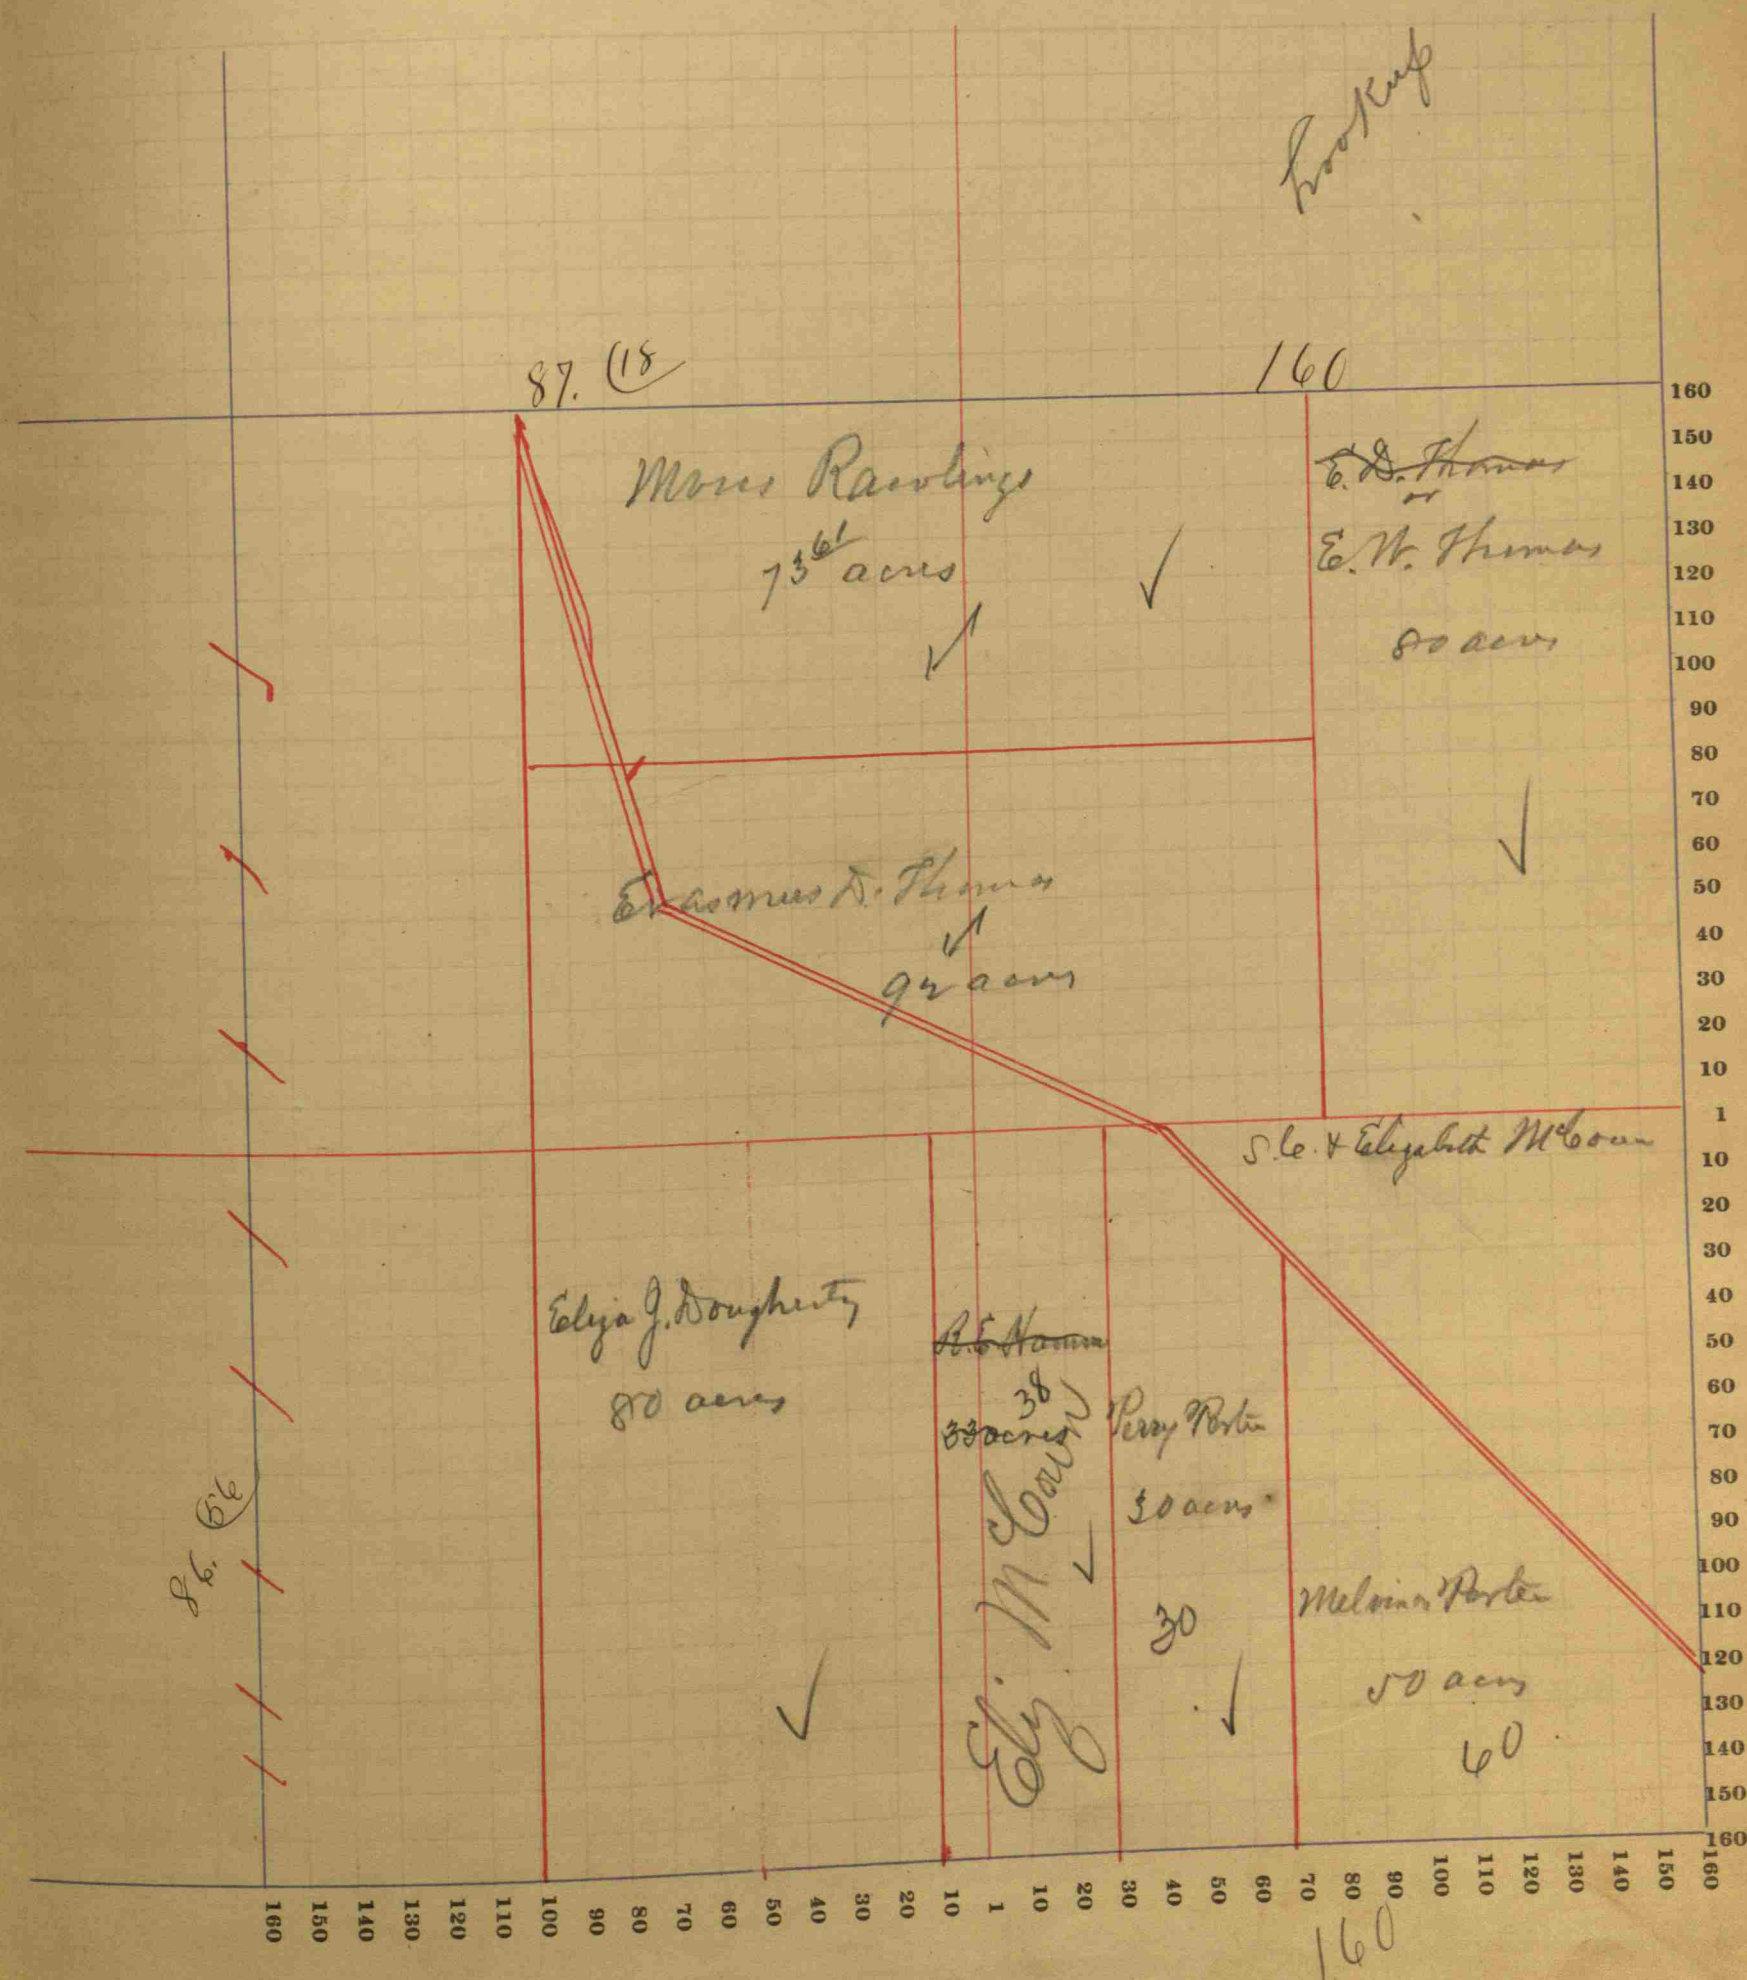 Look up
87. (18
160
Moses Rawlings
73 61 acres
E. D. Thomas
or
E. W. Thomas
80 acres
Erasmus D. Thomas
92 acres
S. C. & Elizabeth McCown
Eliza J. Dougherty
80 acres
R. E. Hamm
38
33 acres
Eliz. McCown
Perry Porter
30 acres
30
Melvina Porter
50 acres
60
86. 56
160
160
150
140
130
120
110
100
90
80
70
60
50
40
30
20
10
1
10
20
30
40
50
60
70
80
90
100
110
120
130
140
150
160
160 150 140 130 120 110 100 90 80 70 60 50 40 30 20 10 1 10 20 30 40 50 60 70 80 90 100 110 120 130 140 150 160